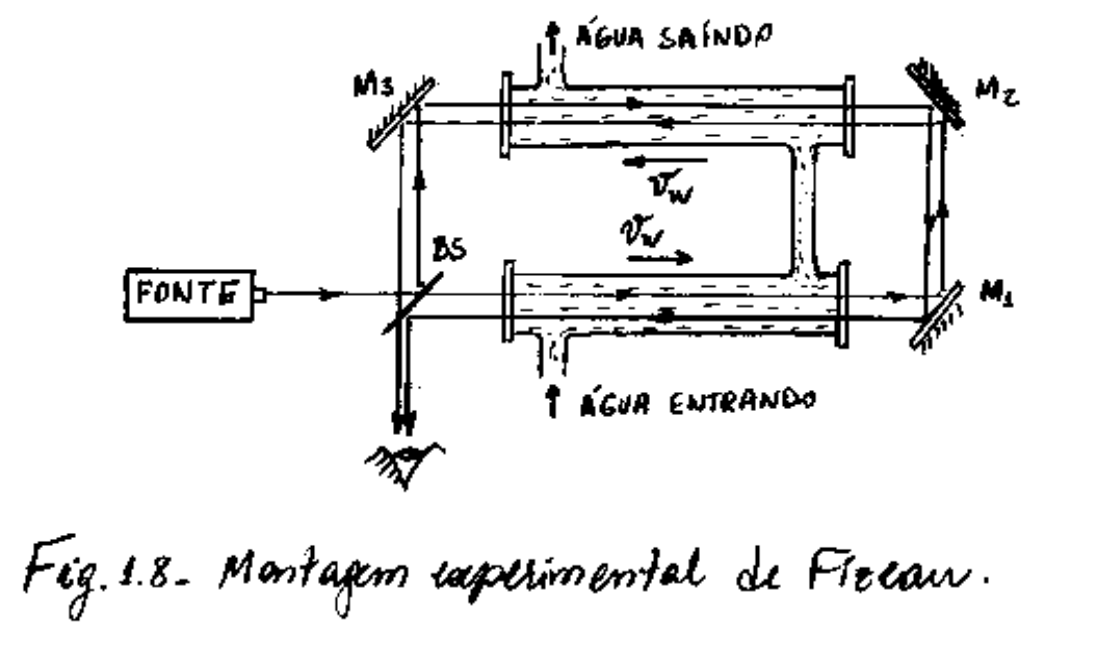 ÁGUA SAÍNDO
M3
M2
𝑣w
𝑣w
BS
FONTE
M1
ÁGUA ENTRANDO
Fig. 1.8- Montagem experimental de Fizeau.